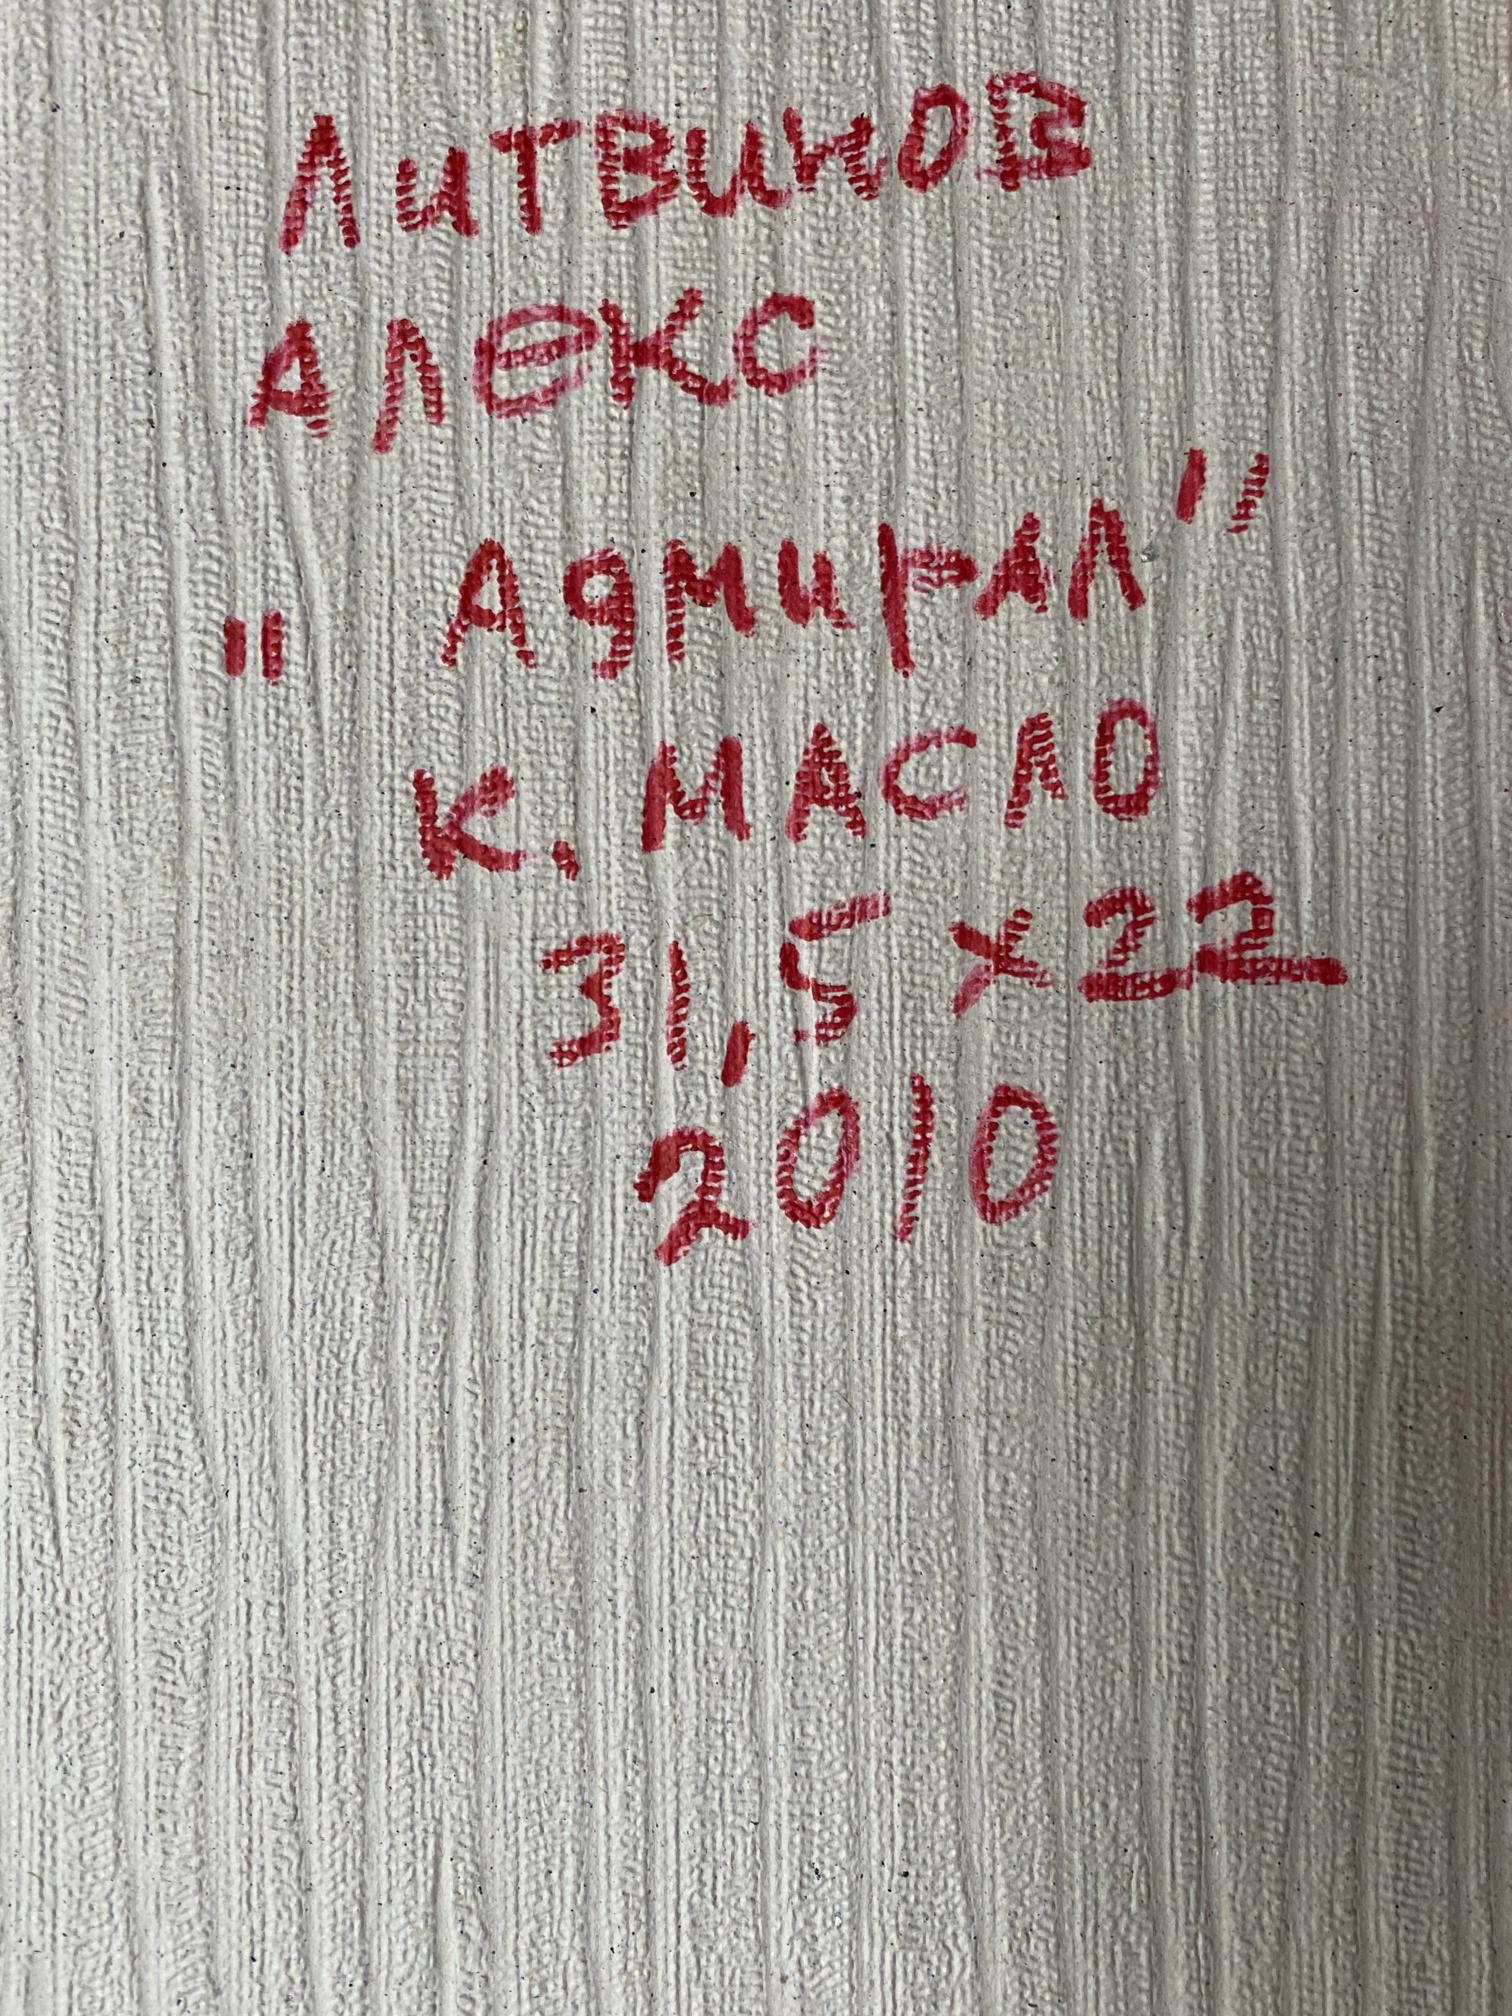 Литвинов
Алекс
"Адмирал"
К. МАСЛО
31,5 х 22
2010